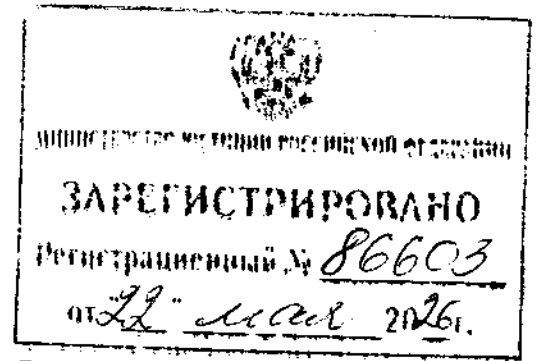 МИНИСТЕРСТВО ЮСТИЦИИ РОССИЙСКОЙ ФЕДЕРАЦИИ
ЗАРЕГИСТРИРОВАНО
Регистрационный № 86603
от "22" мая 2026г.